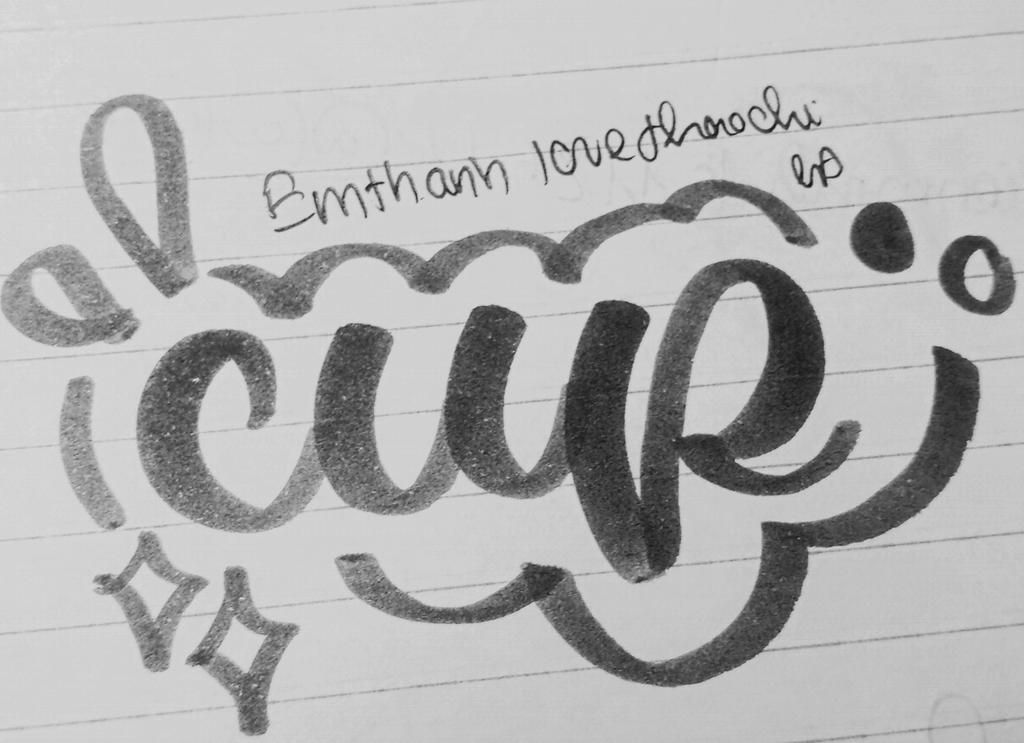 Emthanh love thaochi
cup